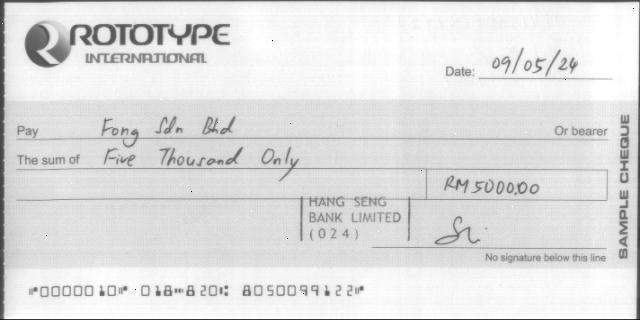 ROTOTYPE
INTERNATIONAL
Date: 09/05/24
Pay Fong Sdn Bhd Or bearer
The sum of Five Thousand Only
RM5000.00
HANG SENG
BANK LIMITED
(024)
No signature below this line
SAMPLE CHEQUE
⑈0000010⑈ 018⑉820⑆ 8050099122⑈